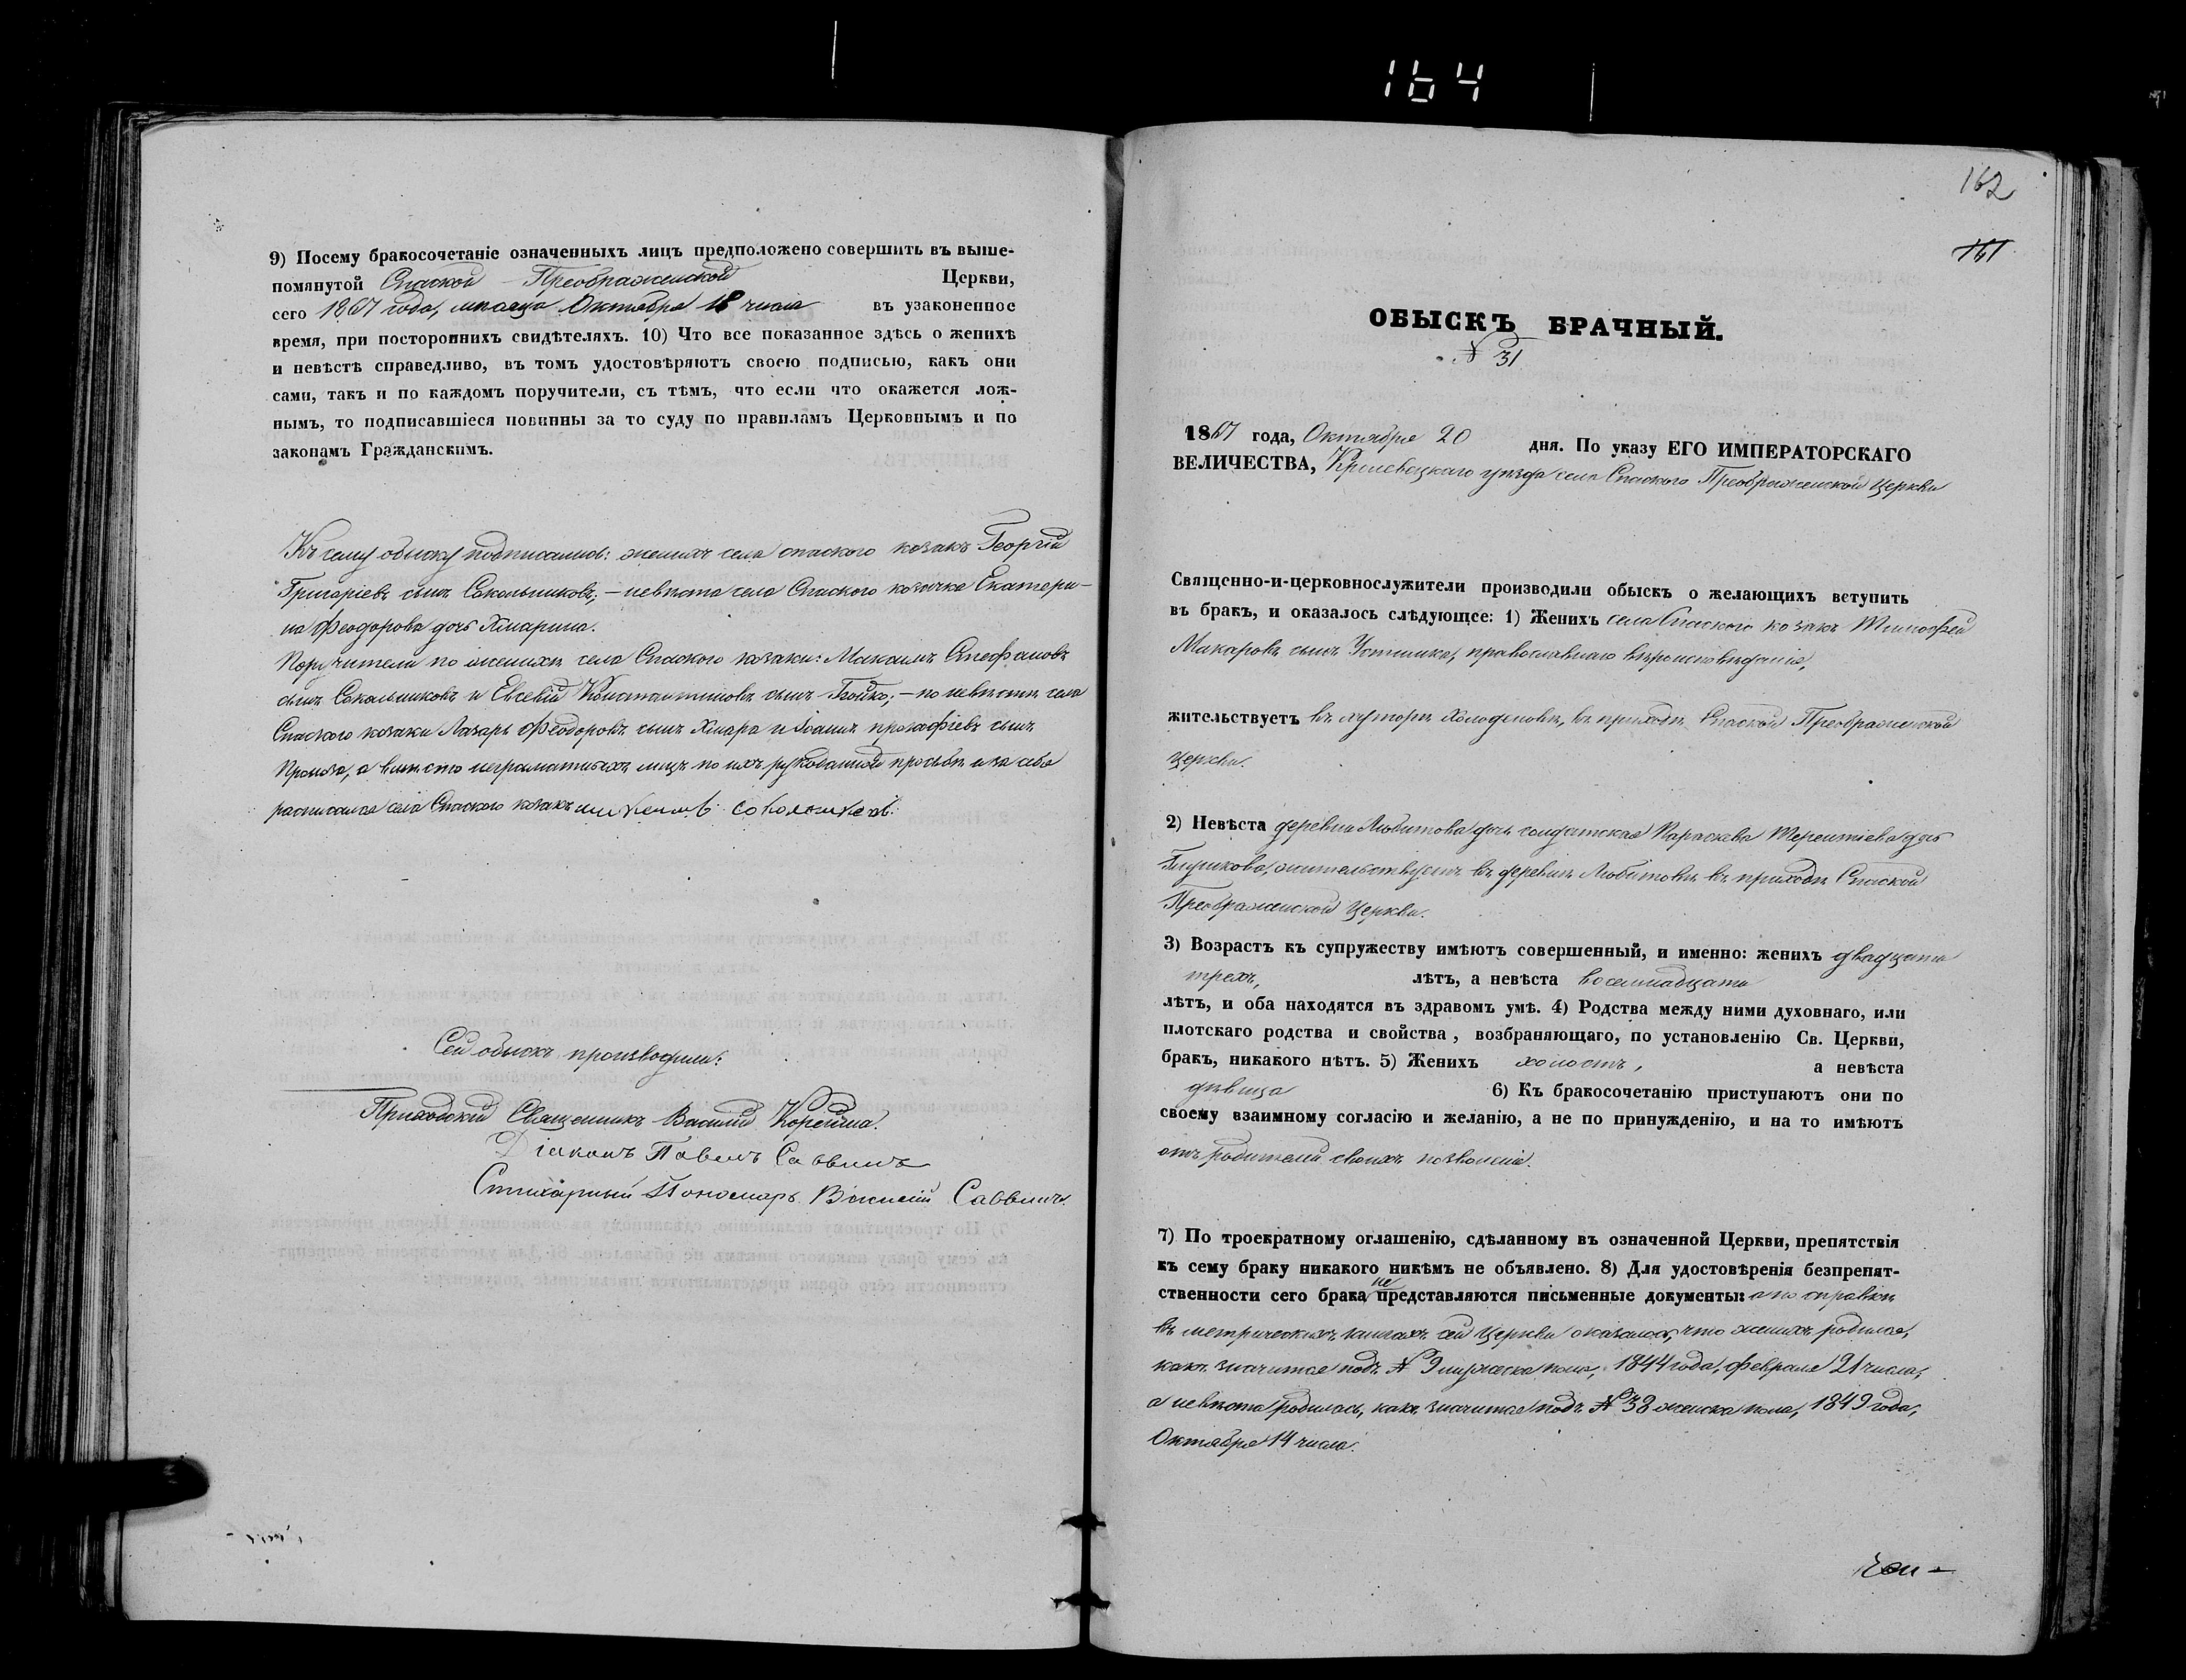 164
9) Посему бракосочетаніе означенныхъ лицъ предположено совершить въ выше-
помянутой Спаской - Преображенской Церкви,
сего 1867 года, мѣсяца Октября 18 числа въ узаконенное
время, при постороннихъ свидѣтеляхъ. 10) Что все показанное здѣсь о женихѣ
и невѣстѣ справедливо, въ томъ удостовѣряютъ своею подписью, какъ они
сами, такъ и по каждомъ поручители, съ тѣмъ, что если что окажется лож-
нымъ, то подписавшіеся повинны за то суду по правиламъ Церковнымъ и по
законамъ Гражданскимъ.
Къ сему обыску подписались: женихъ села спаского козакъ Георгій
Григоріевъ сынъ Сакольниковъ; – невѣста села Спаского козачка Екатери-
на Феодорова дочь Хмарина.
Поручители по женихѣ села Спаского козаки: Максимъ Стефановъ
сынъ Сакольниковъ и Евсевій Константиновъ сынъ Бойко; – по невѣстѣ села
Спаского козаки Лазарь Феодоровъ сынъ Хмара и Іоаннъ сынъ
а вмѣсто неграматныхъ лицъ по ихъ рукоданной прозьбѣ и за себя
расписался села Спаского козакъ
Сей обыскъ производили:
Приходскій Священникъ Василій
Діаконъ Павелъ Саввичъ
Стихарный Пономарь Василій Саввичъ.
162
161
ОБЫСКЪ БРАЧНЫЙ.
№ 31
1867 года, Октября 20 дня. По указу ЕГО ИМПЕРАТОРСКАГО
ВЕЛИЧЕСТВА, Кролевецкаго уѣзда села Спаского Преображенской Церкви
Священно-и-церковнослужители производили обыскъ о желающихъ вступить
въ бракъ, и оказалось слѣдующее: 1) Женихъ села Спаского козакъ Тимофей
Макаровъ сынъ Устименко, православнаго вѣроисповѣданія,
жительствуетъ въ хуторѣ Холоденовѣ, въ приходѣ Спаской Преображенской
Церкви.
2) Невѣста деревни Любитова дочь солдатская Параскева Терентіева дочь
жительствуетъ въ деревнѣ Любитовѣ въ приходѣ Спаской
Преображенской Церкви.
3) Возрастъ къ супружеству имѣютъ совершенный, и именно: женихъ двадцати
трехъ, лѣтъ, а невѣста восемнадцати
лѣтъ, и оба находятся въ здравомъ умѣ. 4) Родства между ними духовнаго, или
плотскаго родства и свойства, возбраняющаго, по установленію Св. Церкви,
бракъ, никакого нѣтъ. 5) Женихъ холостъ, а невѣста
дѣвица 6) Къ бракосочетанію приступаютъ они по
своему взаимному согласію и желанію, а не по принужденію, и на то имѣютъ
отъ родителей своихъ позволеніе.
7) По троекратному оглашенію, сдѣланному въ означенной Церкви, препятствія
къ сему браку никакого никѣмъ не объявлено. 8) Для удостовѣренія безпрепят-
ственности сего брака не представляются письменные документы: а по справкѣ
въ метрическихъ книгахъ сей Церкви оказалось, что женихъ родился,
какъ значится подъ № 9 мужеска пола, 1844 года, февраля 21 числа,
а невѣста родилась, какъ значится подъ № 38 женска пола, 1849 года,
Октября 14 числа.